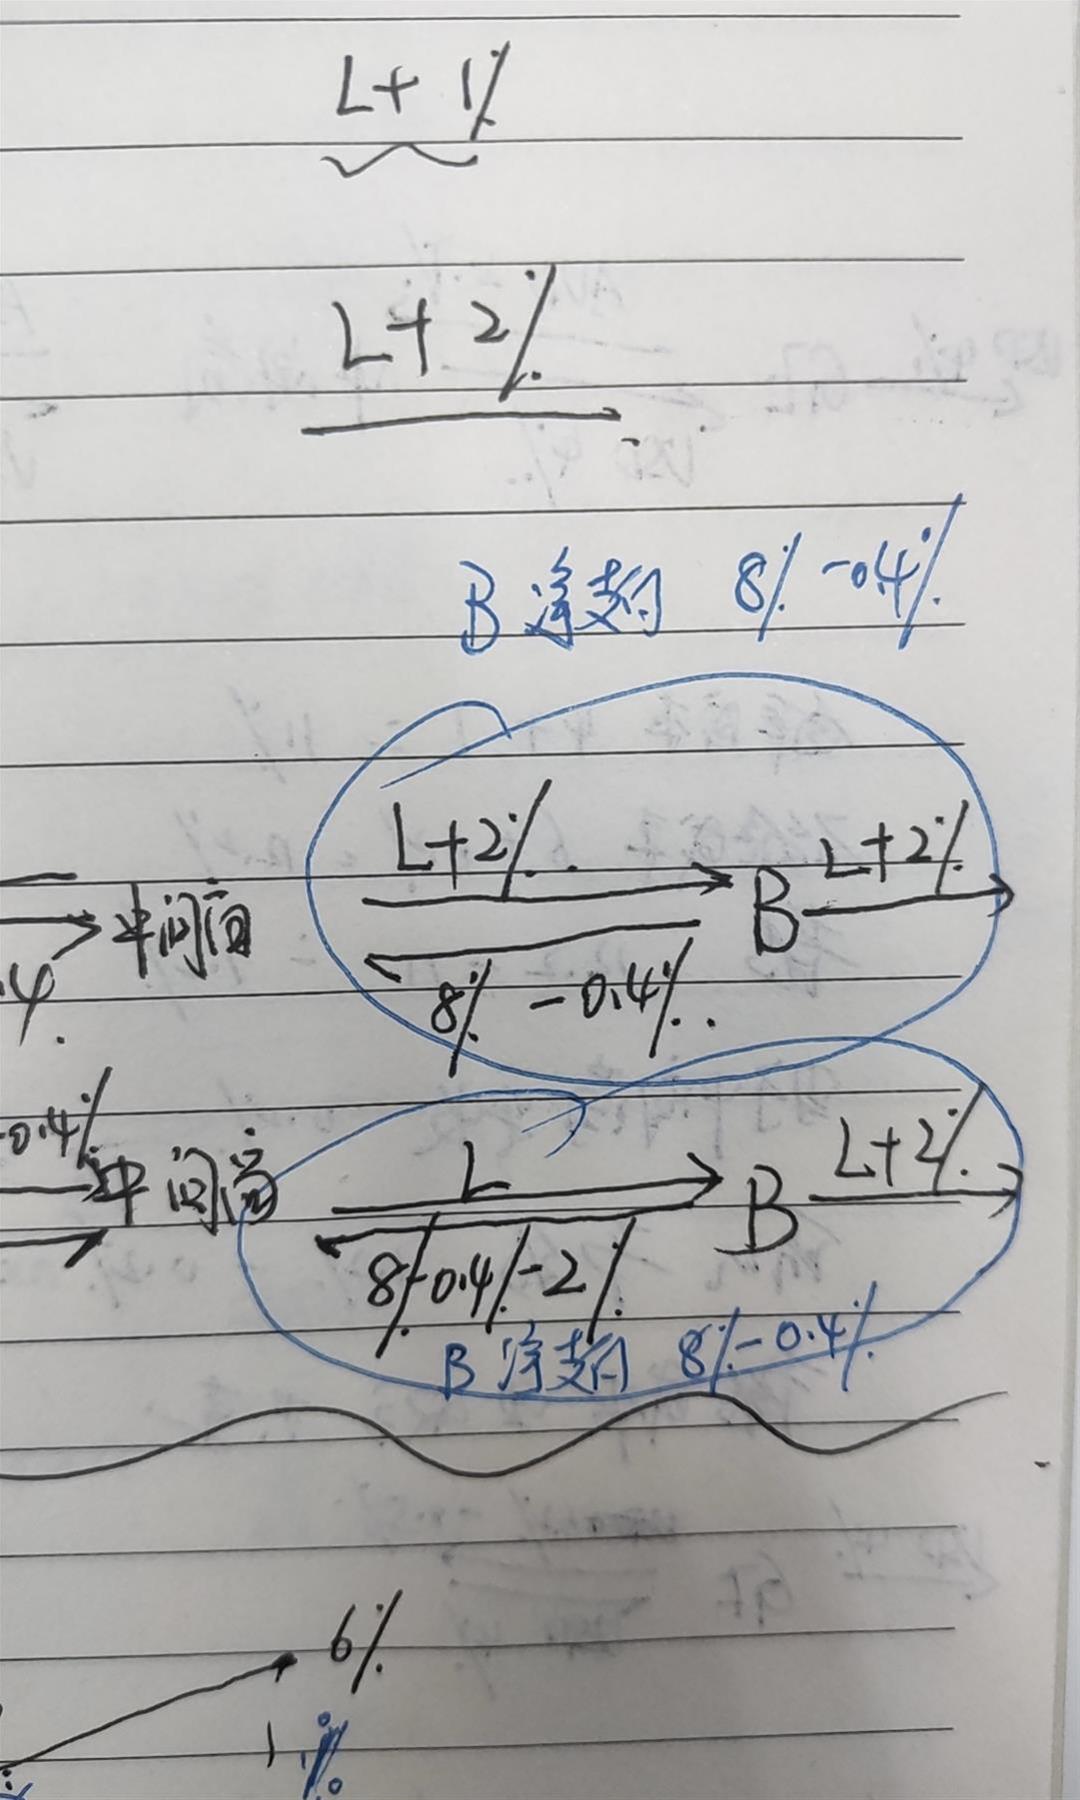 L+ 1%
L+ 2%
B 净支付 8% -0.4%
L+2% L+2%
中间商 B
.4 8% -0.4%
-0.4% L L+2%
中间商 B
8%-0.4%-2%
B 净支付 8%-0.4%
6%
1%